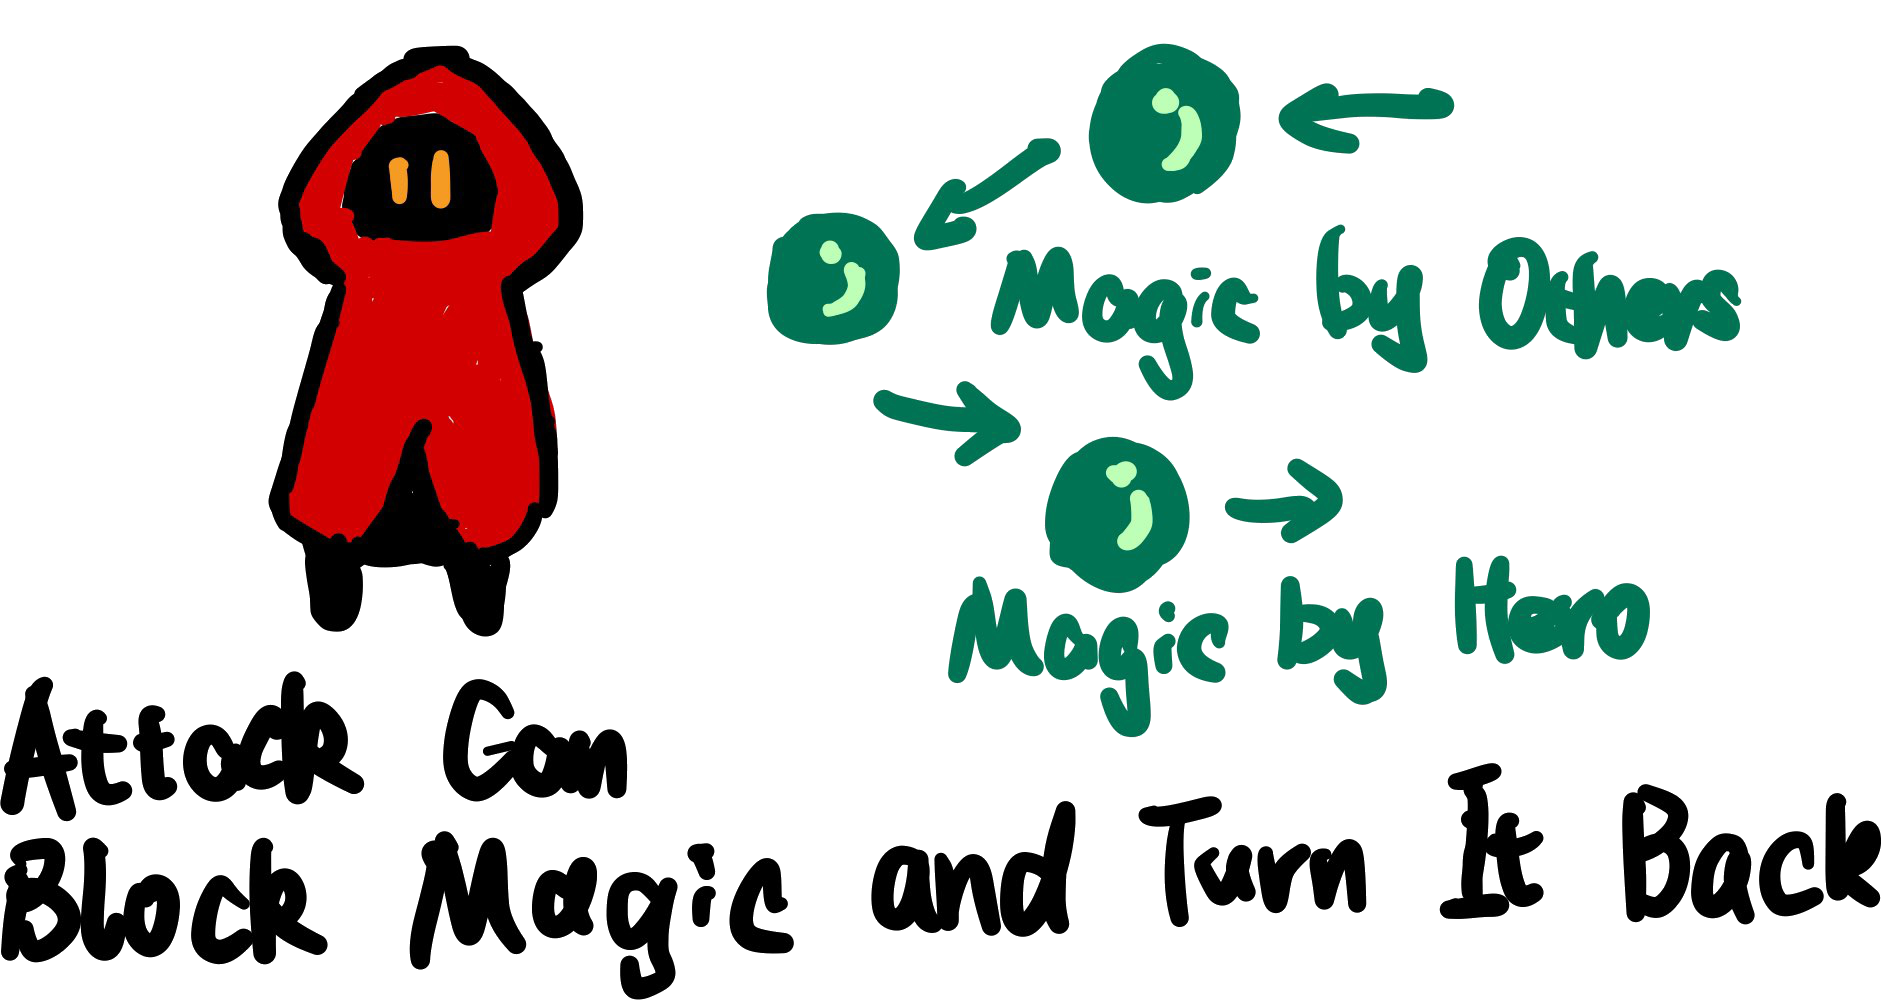 Magic by Others
Magic by Hero
Attack Can
Block Magic and Turn It Back